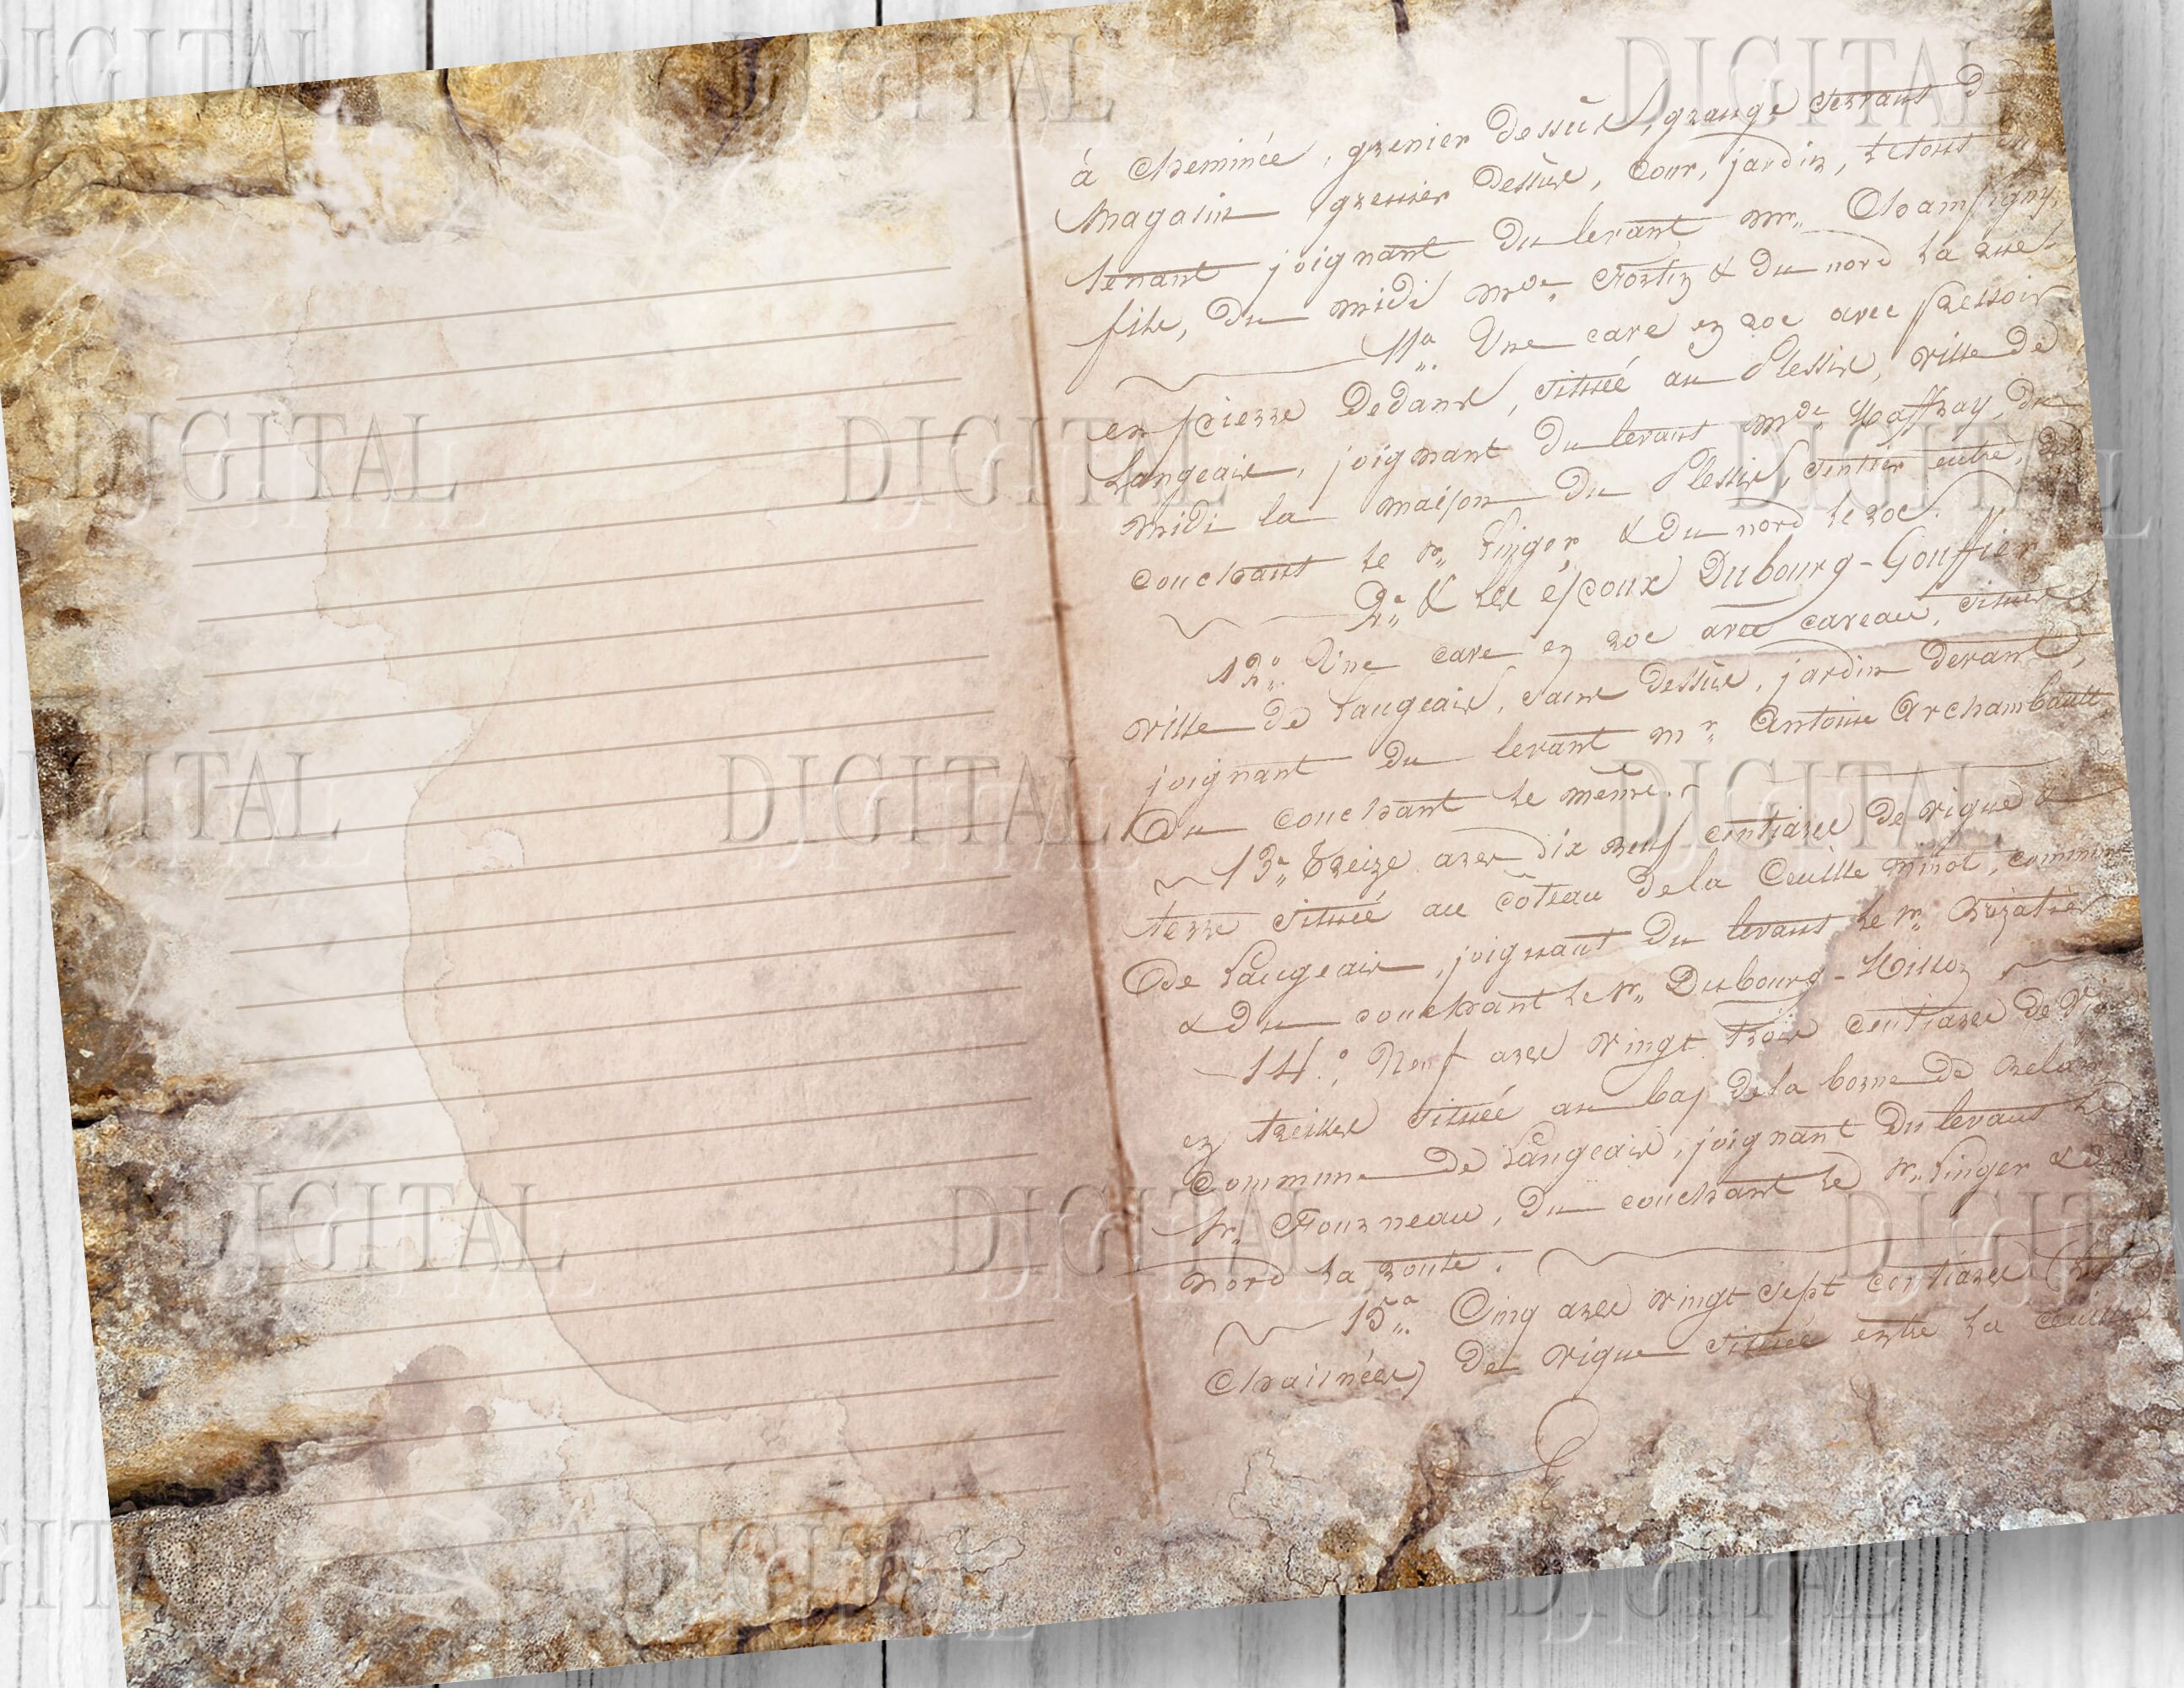 à cheminée, grenier dessus, grange servant de
magasin grenier dessus, cour, jardin, le tout en
tenant joignant du levant mr. Champigny,
fils, du midi mde. Fortin & du nord la rue.
11°. Une cave en roc avec pressoir
en pierre dedans, située au Plessis, ville de
Langeais, joignant du levant mde du
midi la maison du Plessis, sentier entre, du
couchant le sr. Linger & du nord le roc.
2°. & les époux Dubourg-Gouffier
12°. Une cave en roc avec caveau, située
ville de Langeais, dessus, jardin devant,
joignant du levant mr. Antoine Archambault,
du couchant le même.
13°. Treize ares dix neuf centiares de vigne &
terre située au côteau de la commune
de Langeais, joignant du levant le sr.
& du couchant le sr. Dubourg-
14°. Neuf ares vingt trois centiares de
en treilles située au bas de la borne de
commune de Langeais, joignant du levant le
sr. Fourneau, du couchant le sr. Linger & du
nord la route.
15°. Cinq ares vingt sept centiares
chaînées) de vigne située entre la
DIGITAL
DIGITAL
DIGITAL
DIGITAL
DIGITAL
DIGITAL
DIGITAL
DIGITAL
DIGITAL
DIGITAL
DIGITAL
DIGITAL
DIGITAL
DIGITAL